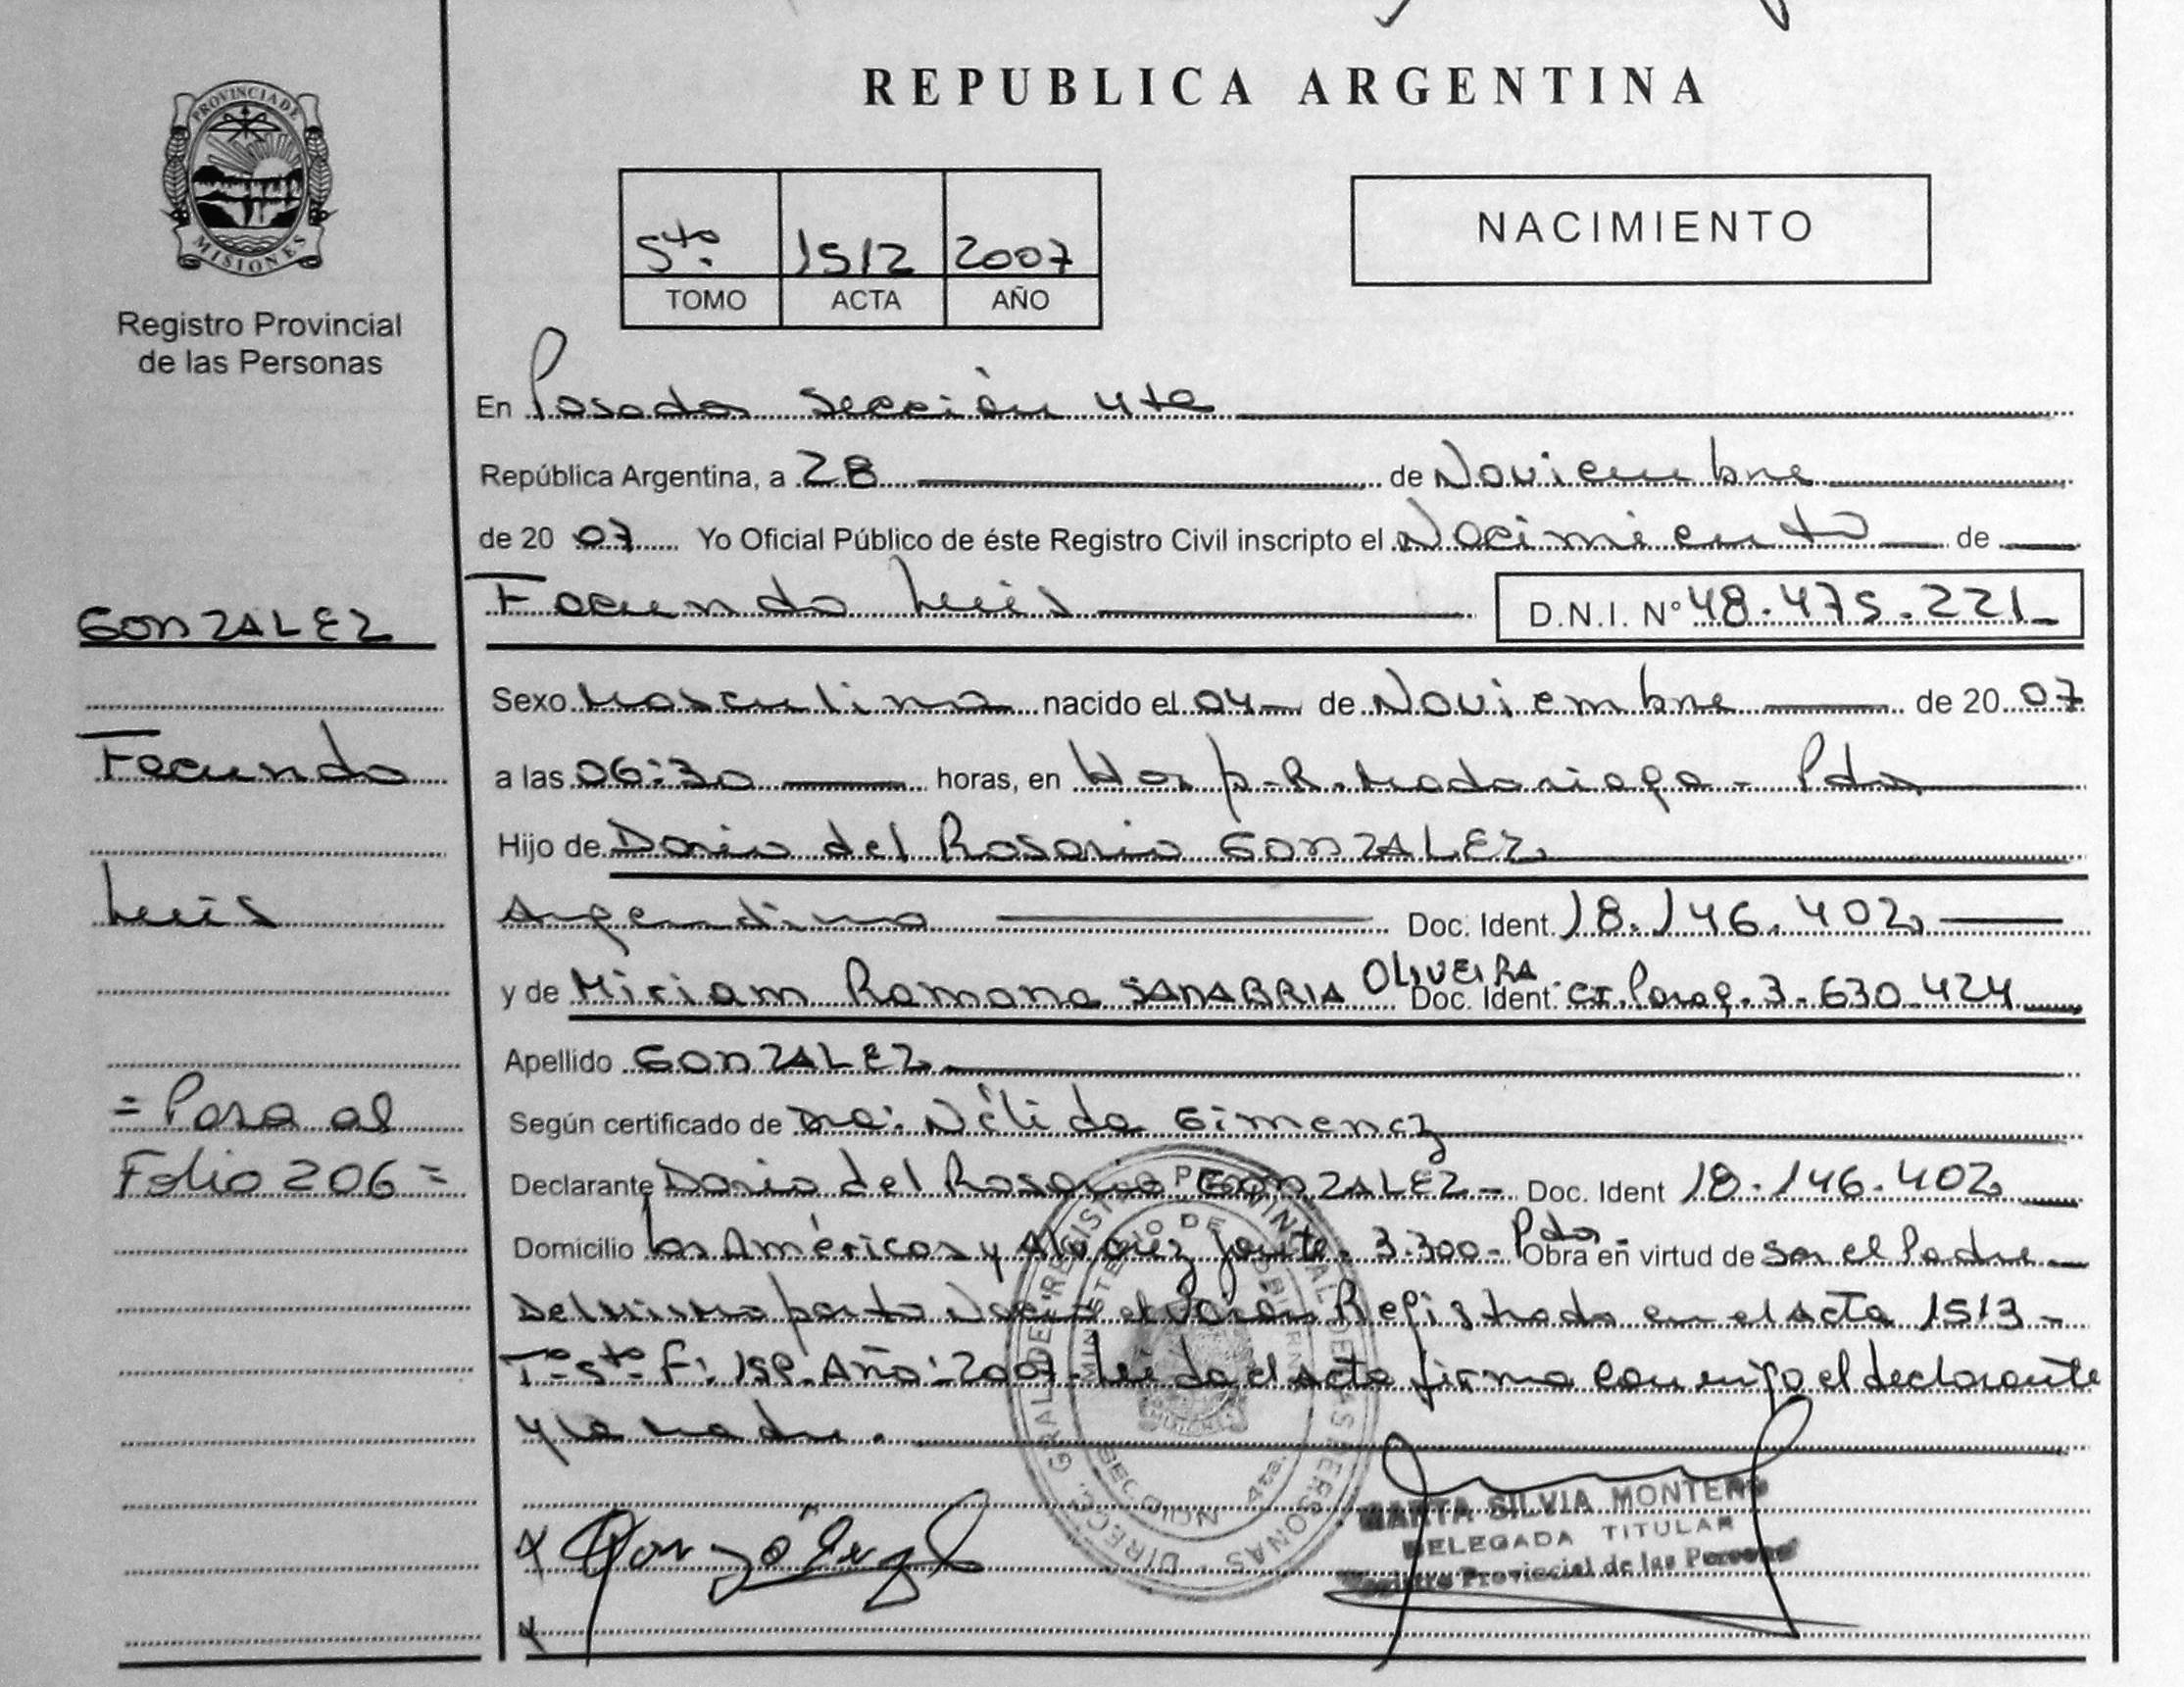 REPUBLICA ARGENTINA
PROVINCIA DE
MISIONES
Registro Provincial
de las Personas
5to. 1512 2007
TOMO ACTA AÑO
NACIMIENTO
En Posadas Sección 4ta
República Argentina, a 28 de Noviembre
de 20 07 Yo Oficial Público de éste Registro Civil inscripto el Nacimiento de
Facundo Luis D.N.I. N° 48.475.221
GONZALEZ
Facundo
Luis
= Pasa al
Folio 206 =
Sexo Masculino nacido el 04 de Noviembre de 20 07
a las 06:30 horas, en Hosp. R. Madariaga - Pdas
Hijo de Dario del Rosario GONZALEZ
Argentino Doc. Ident. 18.146.402
y de Miriam Ramona SANABRIA OLIVEIRA Doc. Ident. CI. Parag. 3.630.424
Apellido GONZALEZ
Según certificado de Dra. Nélida Gimenez
Declarante Dario del Rosario GONZALEZ - Doc. Ident 18.146.402
Domicilio Las Américas y Alvarez Jonte. 3.300 - Pdas - Obra en virtud de Ser el Padre
Del Mismo parto Nació el Varón Registrado en el acta 1513 -
T° 5to F: Año: 2007 - Leida el acta firma conmigo el declarante
y la madre.
DIRECC. GRAL. DEL REGISTRO PROVINCIAL DE LAS PERSONAS
MINISTERIO DE GOBIERNO
MISIONES
SECCION 4ta.
MARTA SILVIA MONTERO
DELEGADA TITULAR
Registro Provincial de las Personas